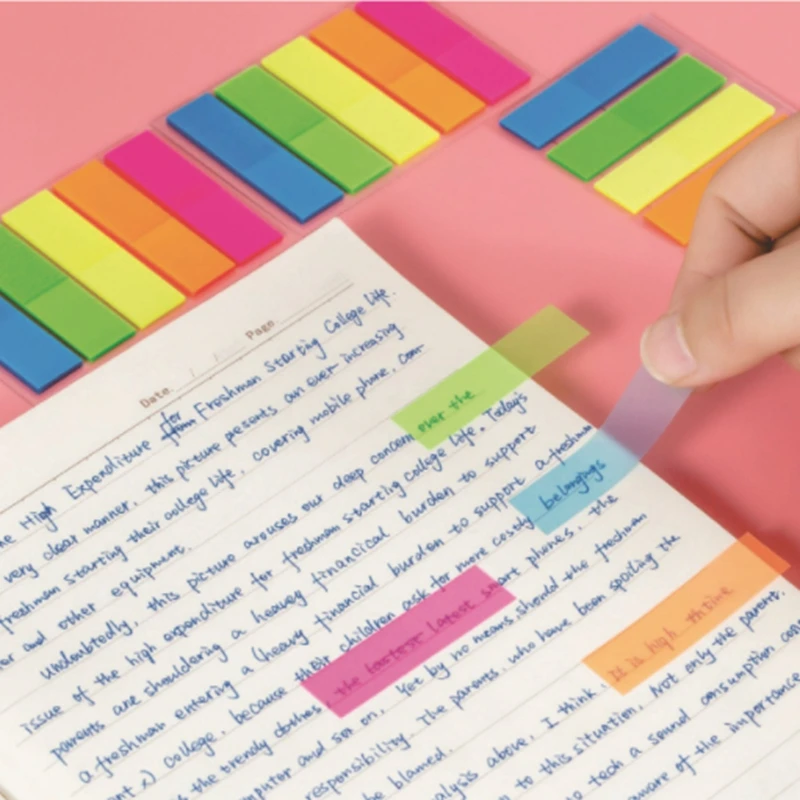 Date. / / Page
he High Expenditure for Freshman Starting College life.
very clear manner, this picture pesents an ever increasing
freshman starting their college life, covering mobile phone, com
er and other equipment.
Undoubtedly, this picture arouses our deep concern over the
issue of the high expenditure for freshman starting college life. Today's
parents are shouldering a heavy financial burden to support
a freshman entering a (heavy financial burden to support a freshman
) College, because their children ask for more costly belongings
the trendy clothes, the lastest latest smart phones, the
mputer and so on. Yet by no means should the freshman
responsibility. The parents, who have been spoiling the
be blamed.
alysis above, I think, It is high
to this situation. Not only the parent.
to tech a sound consumption con
aware of the importance